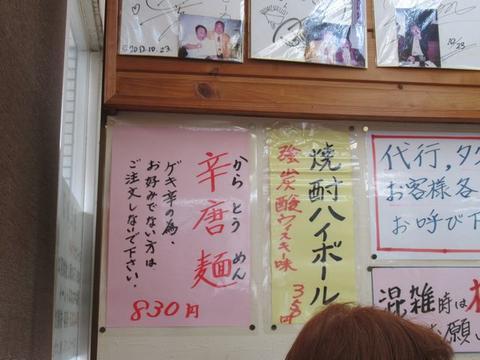 ©2012.10.23
10/23
辛唐麺
からとうめん
ゲキ辛の為、
お好みでない方は
ご注文しないで下さい。
830円
焼酎ハイボール
強炭酸ウィスキー味
350円
代行,タク
お客様各
お呼び下
混雑時は
お願い